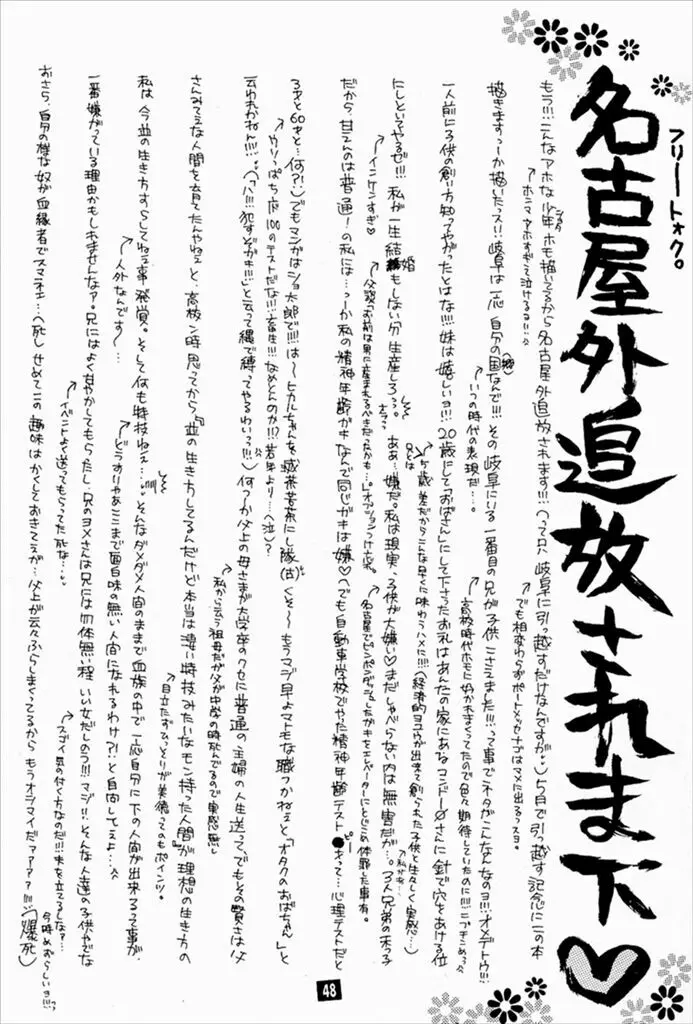 名古屋外追放されま下♡
フリートォク。
もう!!!こんなアホな少年ホモ描いてるから名古屋外追放されます!!!(って只岐阜に引っ越すだけなんですが…)5月で引っ越す記念にこの本
ホンマアホすぎて泣けるヨ…
でも相変わらずポートメッセナゴヤはマメに出るっスヨ。
描きますっーか描いたっス!!岐阜は一応自分の国なんで!!!その岐阜にいる一番目の兄が子供こさえました!!!って事でネタがこんなんなのヨ!!!オメデトウ!!!
いつの時代の表現だ…。
高校時代ホモに好かれまくってたので色々期待していたのに!!!
一人前に子供の創り方知ってやがったとはな!!!妹は嬉しいヨ!!!20歳にして「おばさん」にして下さったお礼はあんたの家にあるコンドーさんに針で穴をあける位
兄とは
歳差だからこんな早くに味わうハメに!!!(経済的ヨユウが出来て創られた子供と生々しく実感…)
にしといてやるぜ!!!私が一生結婚もしない分生産しろっっ。ああ…嫌だ。私は現実の子供が大嫌い♡まだしゃべらない内は無害だが…。3人兄弟の末っ子
インケンすぎ♡
父談「お前は男に産まれるべきだったかも。」
だから、甘えんのは普通!の私には…っーか私の精神年齢がキなんで同じガキは嫌♡(でも自動車学校でやった精神年齢テスト●才って…心理テストだと
ピー
ろ?と60才と…何?!)でもマンガはショ太郎で!!!は〜ヒカルちゃんを
くそ〜もうマジ早よマトモな職つかねぇと「オタクのおばちゃん」と
やりっぱち店100のテストだな!!!畜生!!!なめとんのか!!?若年より…(泣)?
云われかねん!!!…(「ハ!!!犯すぞガキ!!!」と云って縄で縛ってやるわいっ!!!)何っか父上の母さまが大学卒のクセに普通の主婦の人生送って、でもその賢さは父
私から云う祖母だが父が中学の時死んでるので実感無し
さんみてえな人間を育てたんやねぇと、高校ン時思ってから「並の生き方してるんだけど本当は凄い特技みたいなモン持った人間」が理想の生き方の
目立たずひっとりが美徳ってのもポインツ。
私は今並の生き方すらしてねぇ事発覚。そして何も特技ねェ…。そんなダメダメ人間のままで血族の中で一応自分に下の人間が出来るって事が、
人外なんです〜…
どうすりゃあここまで面白味の無い人間になれるわけ?!と自問してえよ…
一番嫌がっている理由かもしれませんなァ。兄にはよく甘やかしてもらったし、兄のヨメさんは兄には勿体無い程いい女だしのう!!!マジ!!!そんな人達の子供やでな
イベントよく送ってもらってた死な…
スゴイ気の付く方なのだ!!!夫を立てるしな?…
今時めずらしいヨ!!!
おさら、自分の様な奴が血縁者でスマネェ…(死)せめてこの趣味はかくしておきてぇが…父上が云々ふらしまくってるからもうオシマイだァァァ?!!!(爆死)
48